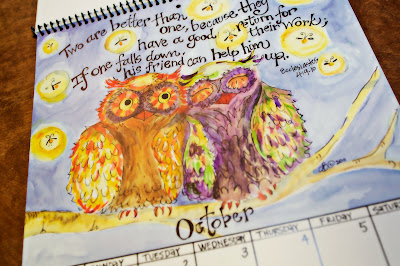 Two are better than
one, because they
have a good return for
their work;
If one falls down,
his friend can help him
up.
Ecclesiastes
4:9-10
October
MONDAY TUESDAY WEDNESDAY THURSDAY FRIDAY SATUR
2 3 4 5